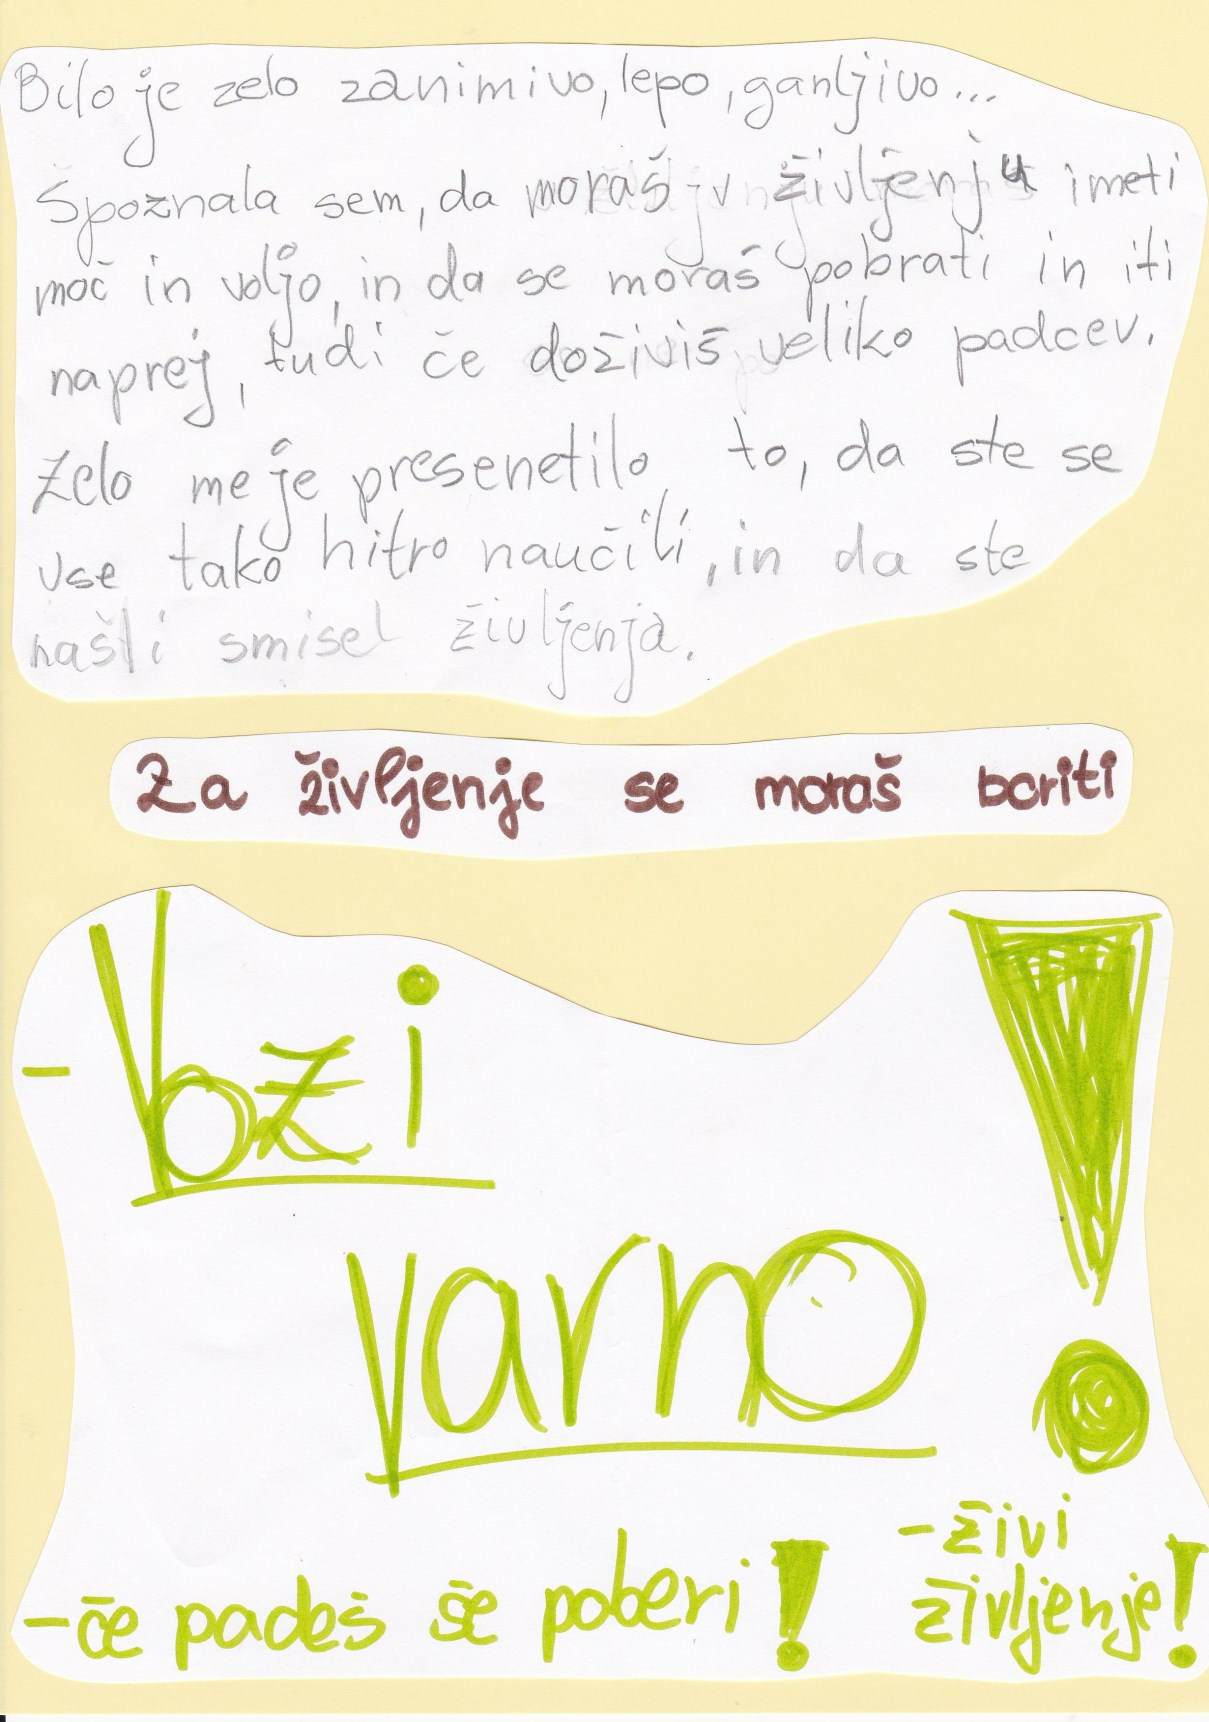 Bilo je zelo zanimivo, lepo, ganljivo...
Spoznala sem, da moraš v življenju imeti
moč in voljo, in da se moraš pobrati in iti
naprej, tudi če doživiš veliko padcev.
Zelo me je presenetilo to, da ste se
vse tako hitro naučili, in da ste
našli smisel življenja.
Za življenje se moraš boriti
- Vozi
varno!
- če padeš še poberi!
- živi
življenje!